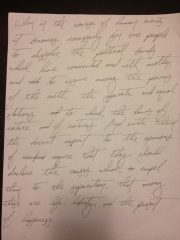 When in the course of human events
it becomes necessary for one people
to dissolve the political bonds
which have connected and with another
and to assume among the powers
of the earth the separate and equal
stations to which the laws of
nature and of nature's God
the decent respect to the opinions
of mankind require that they should
declare the causes which impel
them to the separation, that among
these are life, and the pursuit
of happiness